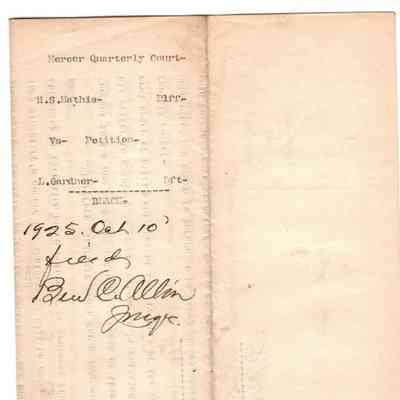 Mercer Quarterly Court-
H.S.Mathis- Plff-
Vs- Petition-
L.Gardner- Dft-
BLACK-
1925. Oct 10
filed
Ben C. Allin
Judge.